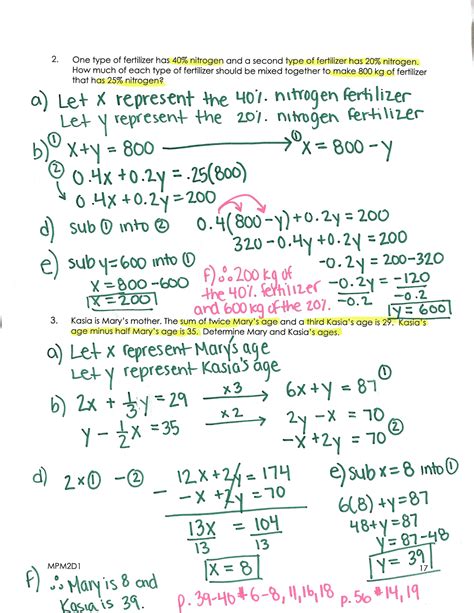 2. One type of fertilizer has 40% nitrogen and a second type of fertilizer has 20% nitrogen.
How much of each type of fertilizer should be mixed together to make 800 kg of fertilizer
that has 25% nitrogen?
a) Let X represent the 40% nitrogen fertilizer
Let y represent the 20% nitrogen fertilizer
b) ① x+y = 800 → ① x = 800 - y
② 0.4x + 0.2y = .25(800)
0.4x + 0.2y = 200
d) sub ① into ② 0.4(800-y)+0.2y = 200
320 - 0.4y + 0.2y = 200
e) sub y=600 into ① -0.2y = 200-320
x = 800 - 600 -0.2y = -120
x = 200 -0.2 -0.2
y = 600
f) ∴ 200 kg of
the 40% fertilizer
and 600 kg of the 20%.
3. Kasia is Mary's mother. The sum of twice Mary's age and a third Kasia's age is 29. Kasia's
age minus half Mary's age is 35. Determine Mary and Kasia's ages.
a) Let x represent Mary's age
Let y represent Kasia's age
b) 2x + 1/3 y = 29 x3 → 6x + y = 87 ①
y - 1/2 x = 35 x2 → 2y - x = 70
-x + 2y = 70 ②
d) 2x① - ② 12x + 2y = 174
- -x + 2y = 70
13x = 104
13 13
x = 8
e) sub x = 8 into ①
6(8) + y = 87
48 + y = 87
y = 87-48
y = 39
17
MPM2D1
f) ∴ Mary is 8 and
Kasia is 39.
p. 39-40 # 6-8, 11, 16, 18 p. 56 # 14, 19